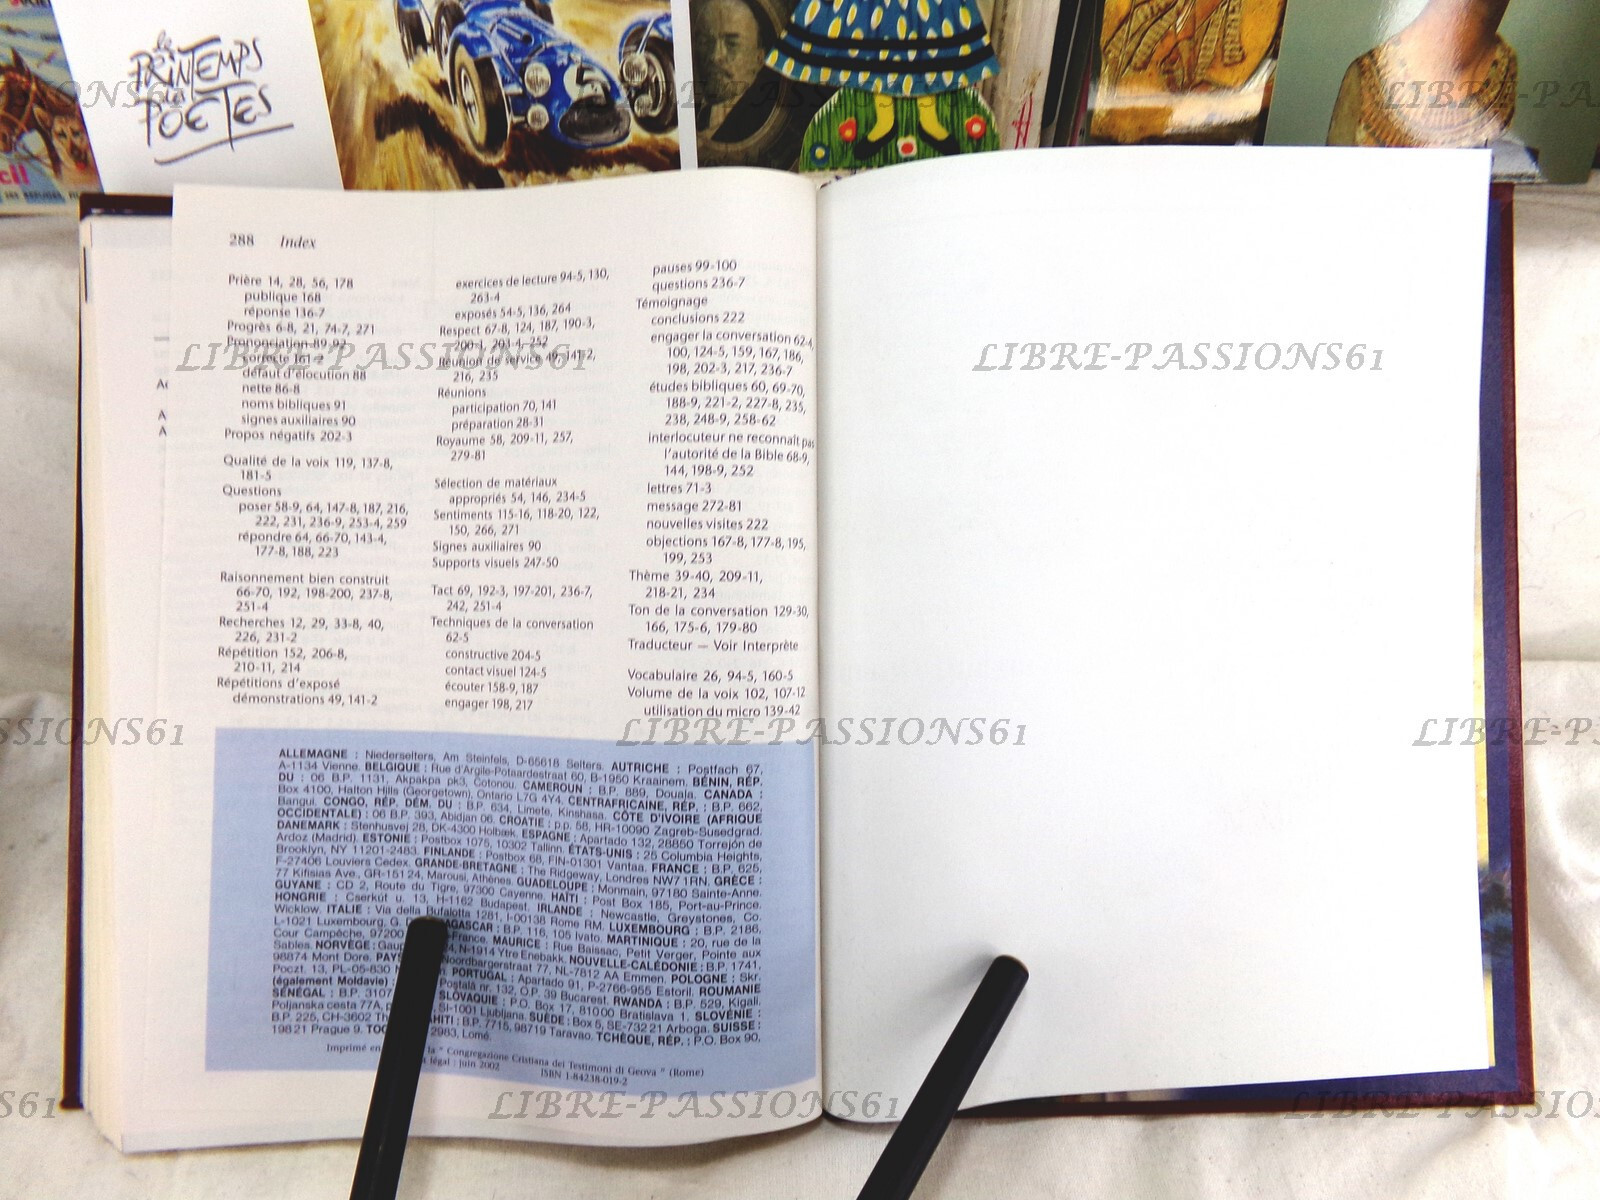 le
PRINTEMPS
des
POETES
cil
5
288 Index
Prière 14, 28, 56, 178
publique 168
réponse 136-7
Progrès 6-8, 21, 74-7, 271
Prononciation 89-92
correcte 161-2
défaut d'élocution 88
nette 86-8
noms bibliques 91
signes auxiliaires 90
Propos négatifs 202-3
Qualité de la voix 119, 137-8,
181-5
Questions
poser 58-9, 64, 147-8, 187, 216,
222, 231, 236-9, 253-4, 259
répondre 64, 66-70, 143-4,
177-8, 188, 223
Raisonnement bien construit
66-70, 192, 198-200, 237-8,
251-4
Recherches 12, 29, 33-8, 40,
226, 231-2
Répétition 152, 206-8,
210-11, 214
Répétitions d'exposé
démonstrations 49, 141-2
exercices de lecture 94-5, 130,
263-4
exposés 54-5, 136, 264
Respect 67-8, 124, 187, 190-3,
200-1, 203-4, 252
Réunion de service 49, 141-2,
216, 235
Réunions
participation 70, 141
préparation 28-31
Royaume 58, 209-11, 257,
279-81
Sélection de matériaux
appropriés 54, 146, 234-5
Sentiments 115-16, 118-20, 122,
150, 266, 271
Signes auxiliaires 90
Supports visuels 247-50
Tact 69, 192-3, 197-201, 236-7,
242, 251-4
Techniques de la conversation
62-5
constructive 204-5
contact visuel 124-5
écouter 158-9, 187
engager 198, 217
pauses 99-100
questions 236-7
Témoignage
conclusions 222
engager la conversation 62-4,
100, 124-5, 159, 167, 186,
198, 202-3, 217, 236-7
études bibliques 60, 69-70,
188-9, 221-2, 227-8, 235,
238, 248-9, 258-62
interlocuteur ne reconnaît pas
l'autorité de la Bible 68-9,
144, 198-9, 252
lettres 71-3
message 272-81
nouvelles visites 222
objections 167-8, 177-8, 195,
199, 253
Thème 39-40, 209-11,
218-21, 234
Ton de la conversation 129-30,
166, 175-6, 179-80
Traducteur — Voir Interprète
Vocabulaire 26, 94-5, 160-5
Volume de la voix 102, 107-12
utilisation du micro 139-42
ALLEMAGNE : Niederselters, Am Steinfels, D-65618 Selters. AUTRICHE : Postfach 67,
A-1134 Vienne. BELGIQUE : Rue d'Argile-Potaardestraat 60, B-1950 Kraainem. BÉNIN, RÉP.
DU : 06 B.P. 1131, Akpakpa pk3, Cotonou. CAMEROUN : B.P. 889, Douala. CANADA :
Box 4100, Halton Hills (Georgetown), Ontario L7G 4Y4. CENTRAFRICAINE, RÉP. : B.P. 662,
Bangui. CONGO, RÉP. DÉM. DU : B.P. 634, Limete, Kinshasa. CÔTE D'IVOIRE (AFRIQUE
OCCIDENTALE) : 06 B.P. 393, Abidjan 06. CROATIE : p.p. 58, HR-10090 Zagreb-Susedgrad.
DANEMARK : Stenhusvej 28, DK-4300 Holbæk. ESPAGNE : Apartado 132, 28850 Torrejón de
Ardoz (Madrid). ESTONIE : Postbox 1075, 10302 Tallinn. ÉTATS-UNIS : 25 Columbia Heights,
Brooklyn, NY 11201-2483. FINLANDE : Postbox 68, FIN-01301 Vantaa. FRANCE : B.P. 625,
F-27406 Louviers Cedex. GRANDE-BRETAGNE : The Ridgeway, Londres NW7 1RN. GRÈCE :
77 Kifisias Ave., GR-151 24, Marousi, Athènes. GUADELOUPE : Monmain, 97180 Sainte-Anne.
GUYANE : CD 2, Route du Tigre, 97300 Cayenne. HAÏTI : Post Box 185, Port-au-Prince.
HONGRIE : Cserkút u. 13, H-1162 Budapest. IRLANDE : Newcastle, Greystones, Co.
Wicklow. ITALIE : Via della Bufalotta 1281, I-00138 Rome RM. LUXEMBOURG : B.P. 2186,
L-1021 Luxembourg, G. D. AGASCAR : B.P. 116, 105 Ivato. MARTINIQUE : 20, rue de la
Cour Campêche, 97200 -France. MAURICE : Rue Baissac, Petit Verger, Pointe aux
Sables. NORVÈGE : Gaup 4, N-1914 Ytre Enebakk. NOUVELLE-CALÉDONIE : B.P. 1741,
98874 Mont Dore. PAYS Noordbargerstraat 77, NL-7812 AA Emmen. POLOGNE : Skr.
Poczt. 13, PL-05-830 N PORTUGAL : Apartado 91, P-2766-955 Estoril. ROUMANIE
(également Moldavie) : Postală nr. 132, O.P. 39 Bucarest. RWANDA : B.P. 529, Kigali.
SÉNÉGAL : B.P. 3107 SLOVAQUIE : P.O. Box 17, 810 00 Bratislava 1. SLOVÉNIE :
Poljanska cesta 77A, p SI-1001 Ljubljana. SUÈDE : Box 5, SE-732 21 Arboga. SUISSE :
B.P. 225, CH-3602 Th AHITI : B.P. 7715, 98719 Taravao. TCHÈQUE, RÉP. : P.O. Box 90,
198 21 Prague 9. TOG 2983, Lomé.
Imprimé en la " Congregazione Cristiana dei Testimoni di Geova " (Rome)
légal : juin 2002
ISBN 1-84238-019-2
LIBRE-PASSIONS61
LIBRE-PASSIONS61
LIBRE-PASSIONS61
LIBRE-PASSIONS61